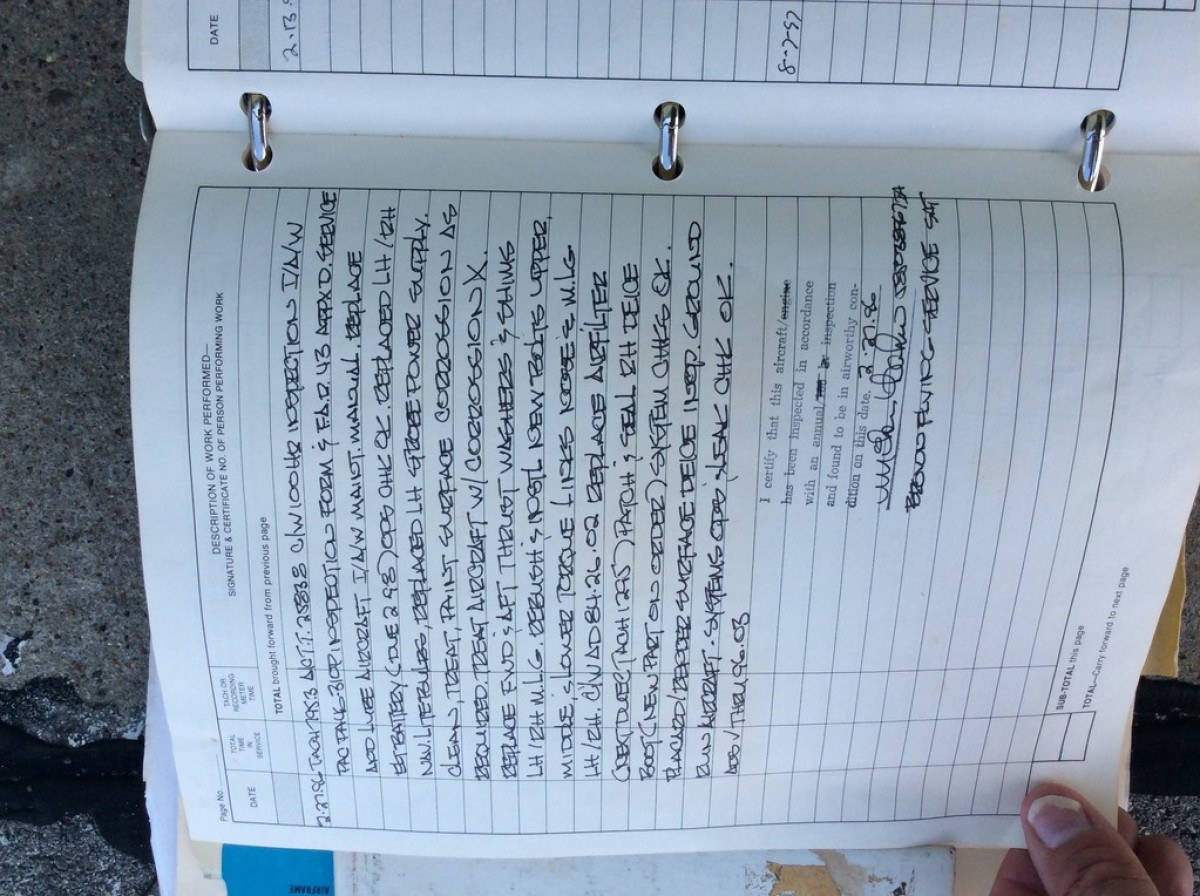 DATE
2.13.
8-7-97
Page No.
DATE
TOTAL TIME IN SERVICE
TACH OR RECORDING METER TIME
DESCRIPTION OF WORK PERFORMED—
SIGNATURE & CERTIFICATE NO. OF PERSON PERFORMING WORK
TOTAL brought forward from previous page
2.27.96 TACH 1958.3 ACT.T. 2583.8 C/W 100 HR INSPECTION I/A/W
INSPECTION FORM & F.A.R. 43 APPX D. SERVICE
AND LUBE AIRCRAFT I/A/W MAINT. MANUAL. REPLACE
BATTERY (DUE 2.98) OPS CHK OK. REPLACED LH/RH
NAV. LITE BULBS, REPLACED LH STROBE POWER SUPPLY.
CLEAN, TREAT, PAINT SURFACE CORROSSION AS
REQUIRED. TREAT AIRCRAFT W/ CORROSSION X.
REPLACE FWD & AFT THRUST WASHERS & SHIMS
LH/RH M.L.G. REBUSH & INSTL NEW BOLTS UPPER,
MIDDLE, & LOWER TORQUE LINKS NOSE & M.L.G
LH/RH. C/W AD 84.26.02 REPLACE AIR FILTER
(NEXT DUE TACH ) PATCH & SEAL RH DEICE
BOOT (NEW PART ON ORDER) SYSTEM CHKS OK.
PLACARD SURFACE DEICE INOP. GROUND
RUN AIRCRAFT. SYSTEMS OPS & LEAK CHK OK.
ADS V THRU 96.03
I certify that this aircraft/engine
has been inspected in accordance
with an annual, inspection
and found to be in airworthy con-
dition on this date. 2.27.96
SERVICE
SUB-TOTAL this page
TOTAL—Carry forward to next page
AIRFRAME